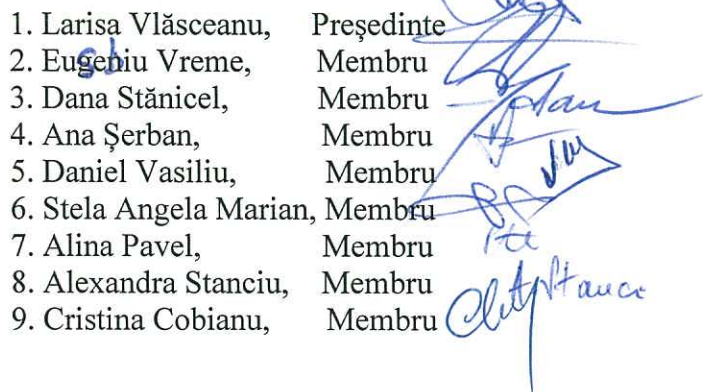 1. Larisa Vlăsceanu, Președinte
2. Eugeniu Vreme, Membru
3. Dana Stănicel, Membru
4. Ana Șerban, Membru
5. Daniel Vasiliu, Membru
6. Stela Angela Marian, Membru
7. Alina Pavel, Membru
8. Alexandra Stanciu, Membru
9. Cristina Cobianu, Membru